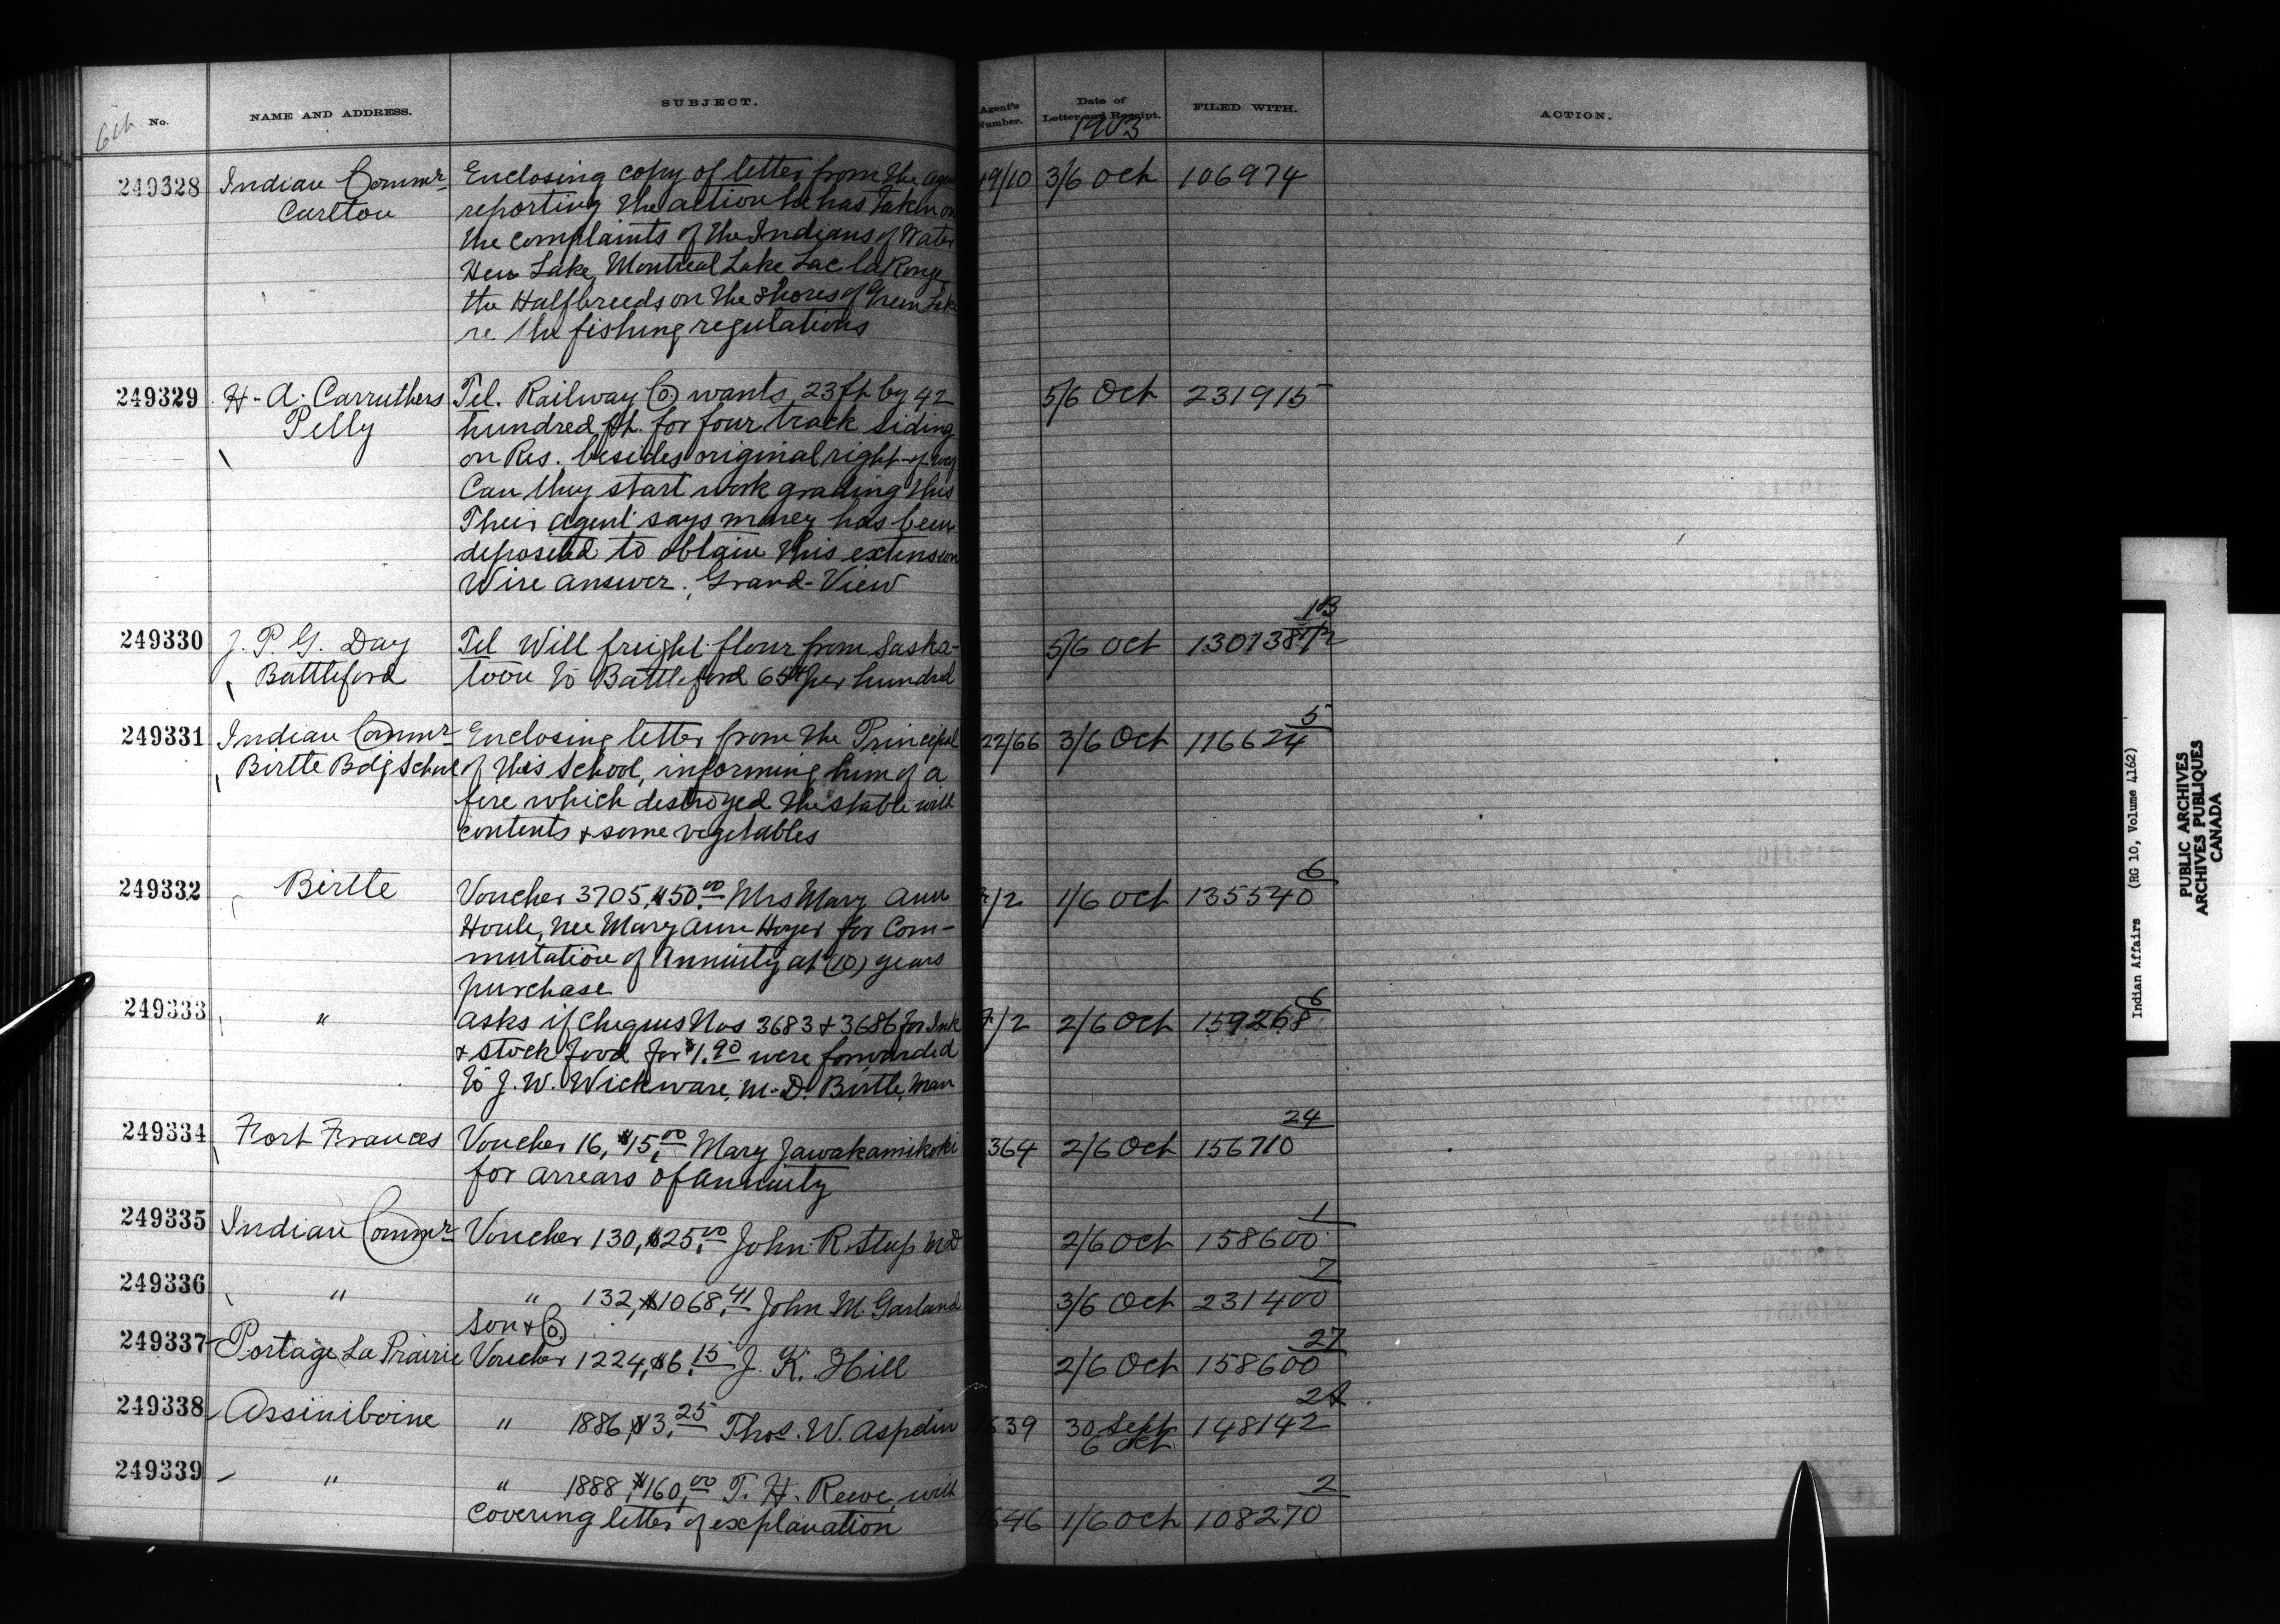 6th No. NAME AND ADDRESS. SUBJECT. Agent's Number. Date of Letter and Receipt. 1903 FILED WITH. ACTION.
249328 Indian Commr Enclosing copy of letter from the agen 49/10 3/6 Oct 106974
Carlton reporting the action he has taken on
the complaints of the Indians of Water
Hen Lake, Montreal Lake Lac la Ronge
the Halfbreeds on the shores of Green Lake
re. the fishing regulations
249329 H. A. Carruthers Tel. Railway Co wants 23 ft by 42 5/6 Oct 231915
Pelly hundred ft. for four track siding
on Res. besides original right-of way
Can they start work grading this
Their agent says money has been
deposited to obtain this extension
Wire answer. Grand-View
249330 J. P. G. Day Tel Will freight flour from Saska- 5/6 Oct 130138
Battleford toon to Battleford 65 per hundred
249331 Indian Commr Enclosing letter from the Principal 22/66 3/6 Oct 116624 5
Birtle Bdg School of this School, informing him of a
fire which destroyed the stable with
contents & some vegetables
249332 Birtle Voucher 3705, $50.00 Mrs Mary Ann /2 1/6 Oct 135540 6
Houle, nee Mary Ann Hoyer for Com-
mutation of Annuity at (10) years
purchase
249333 " asks if Cheques Nos 3683 & 3686 for Ink 7/2 2/6 Oct 159268 6
& stock food for $1.90 were forwarded
to J. W. Wickware, M.D. Birtle, Man
249334 Fort Frances Voucher 16, $15.00 Mary Jawakamikoki 364 2/6 Oct 156710 24
for arrears of Annuity
249335 Indian Commr Voucher 130, $25.00 John R Steep MD 2/6 Oct 158600 1
249336 " " 132, $1068.41 John M. Garland 3/6 Oct 231400 7
Son & Co.
249337 Portage La Prairie Voucher 1224, $6.15 J. K. Hill 2/6 Oct 158600 27
249338 Assiniboine " 1886, $3.25 Thos. W. Aspdin 1639 30 Sept 148142
6 Oct
249339 " " 1888, $160.00 T. H. Reeve, with
covering letter of explanation 1646 1/6 Oct 108270 2
Indian Affairs (RG 10, Volume 4162)
PUBLIC ARCHIVES
ARCHIVES PUBLIQUES
CANADA